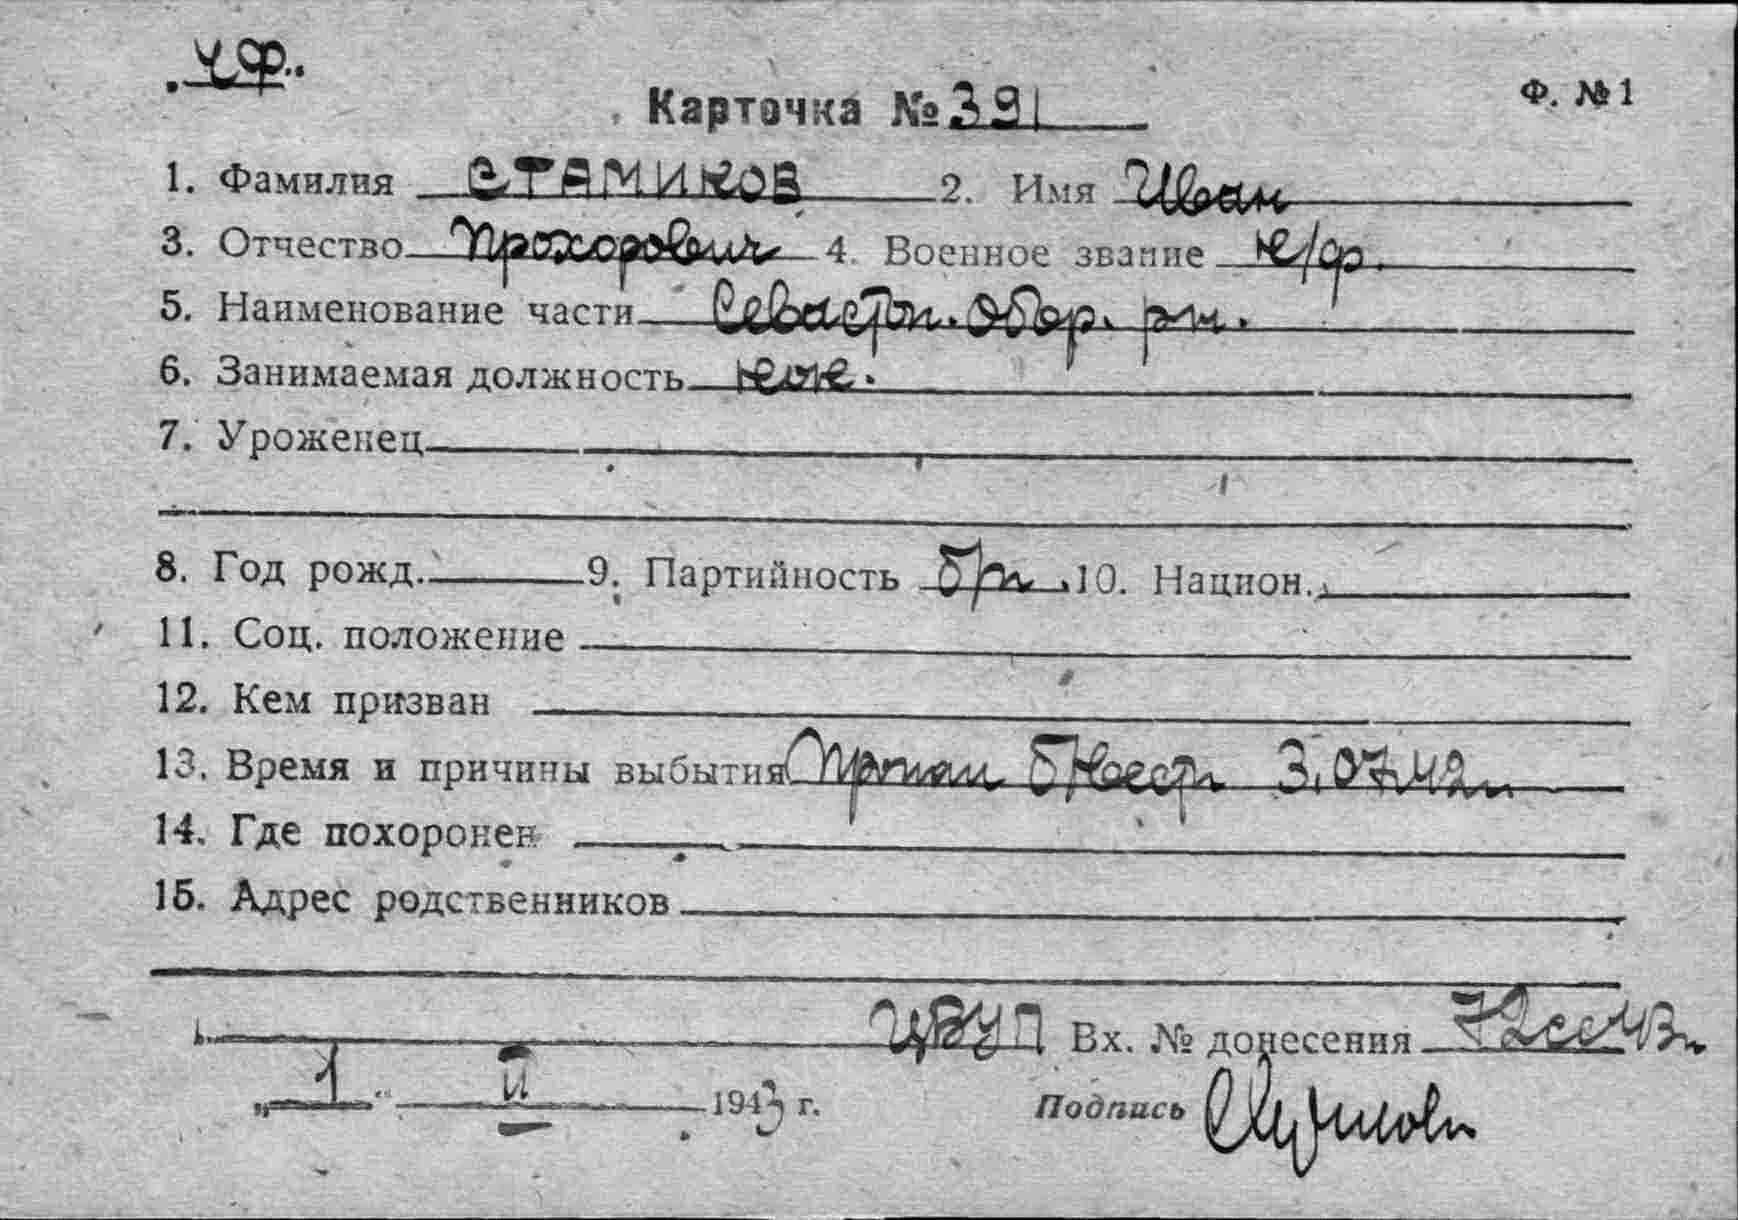 ЧФ.
Карточка № 391
Ф. № 1
1. Фамилия СТАМИКОВ 2. Имя Иван
3. Отчество Прохорович 4. Военное звание к/ф.
5. Наименование части Севастоп. обор. р-н.
6. Занимаемая должность
7. Уроженец
8. Год рожд. 9. Партийность б/п 10. Национ.
11. Соц. положение
12. Кем призван
13. Время и причины выбытия Пропал б/вест 3.07.42г.
14. Где похоронен
15. Адрес родственников
ЦБУП Вх. № донесения
„1" II 1943 г. Подпись